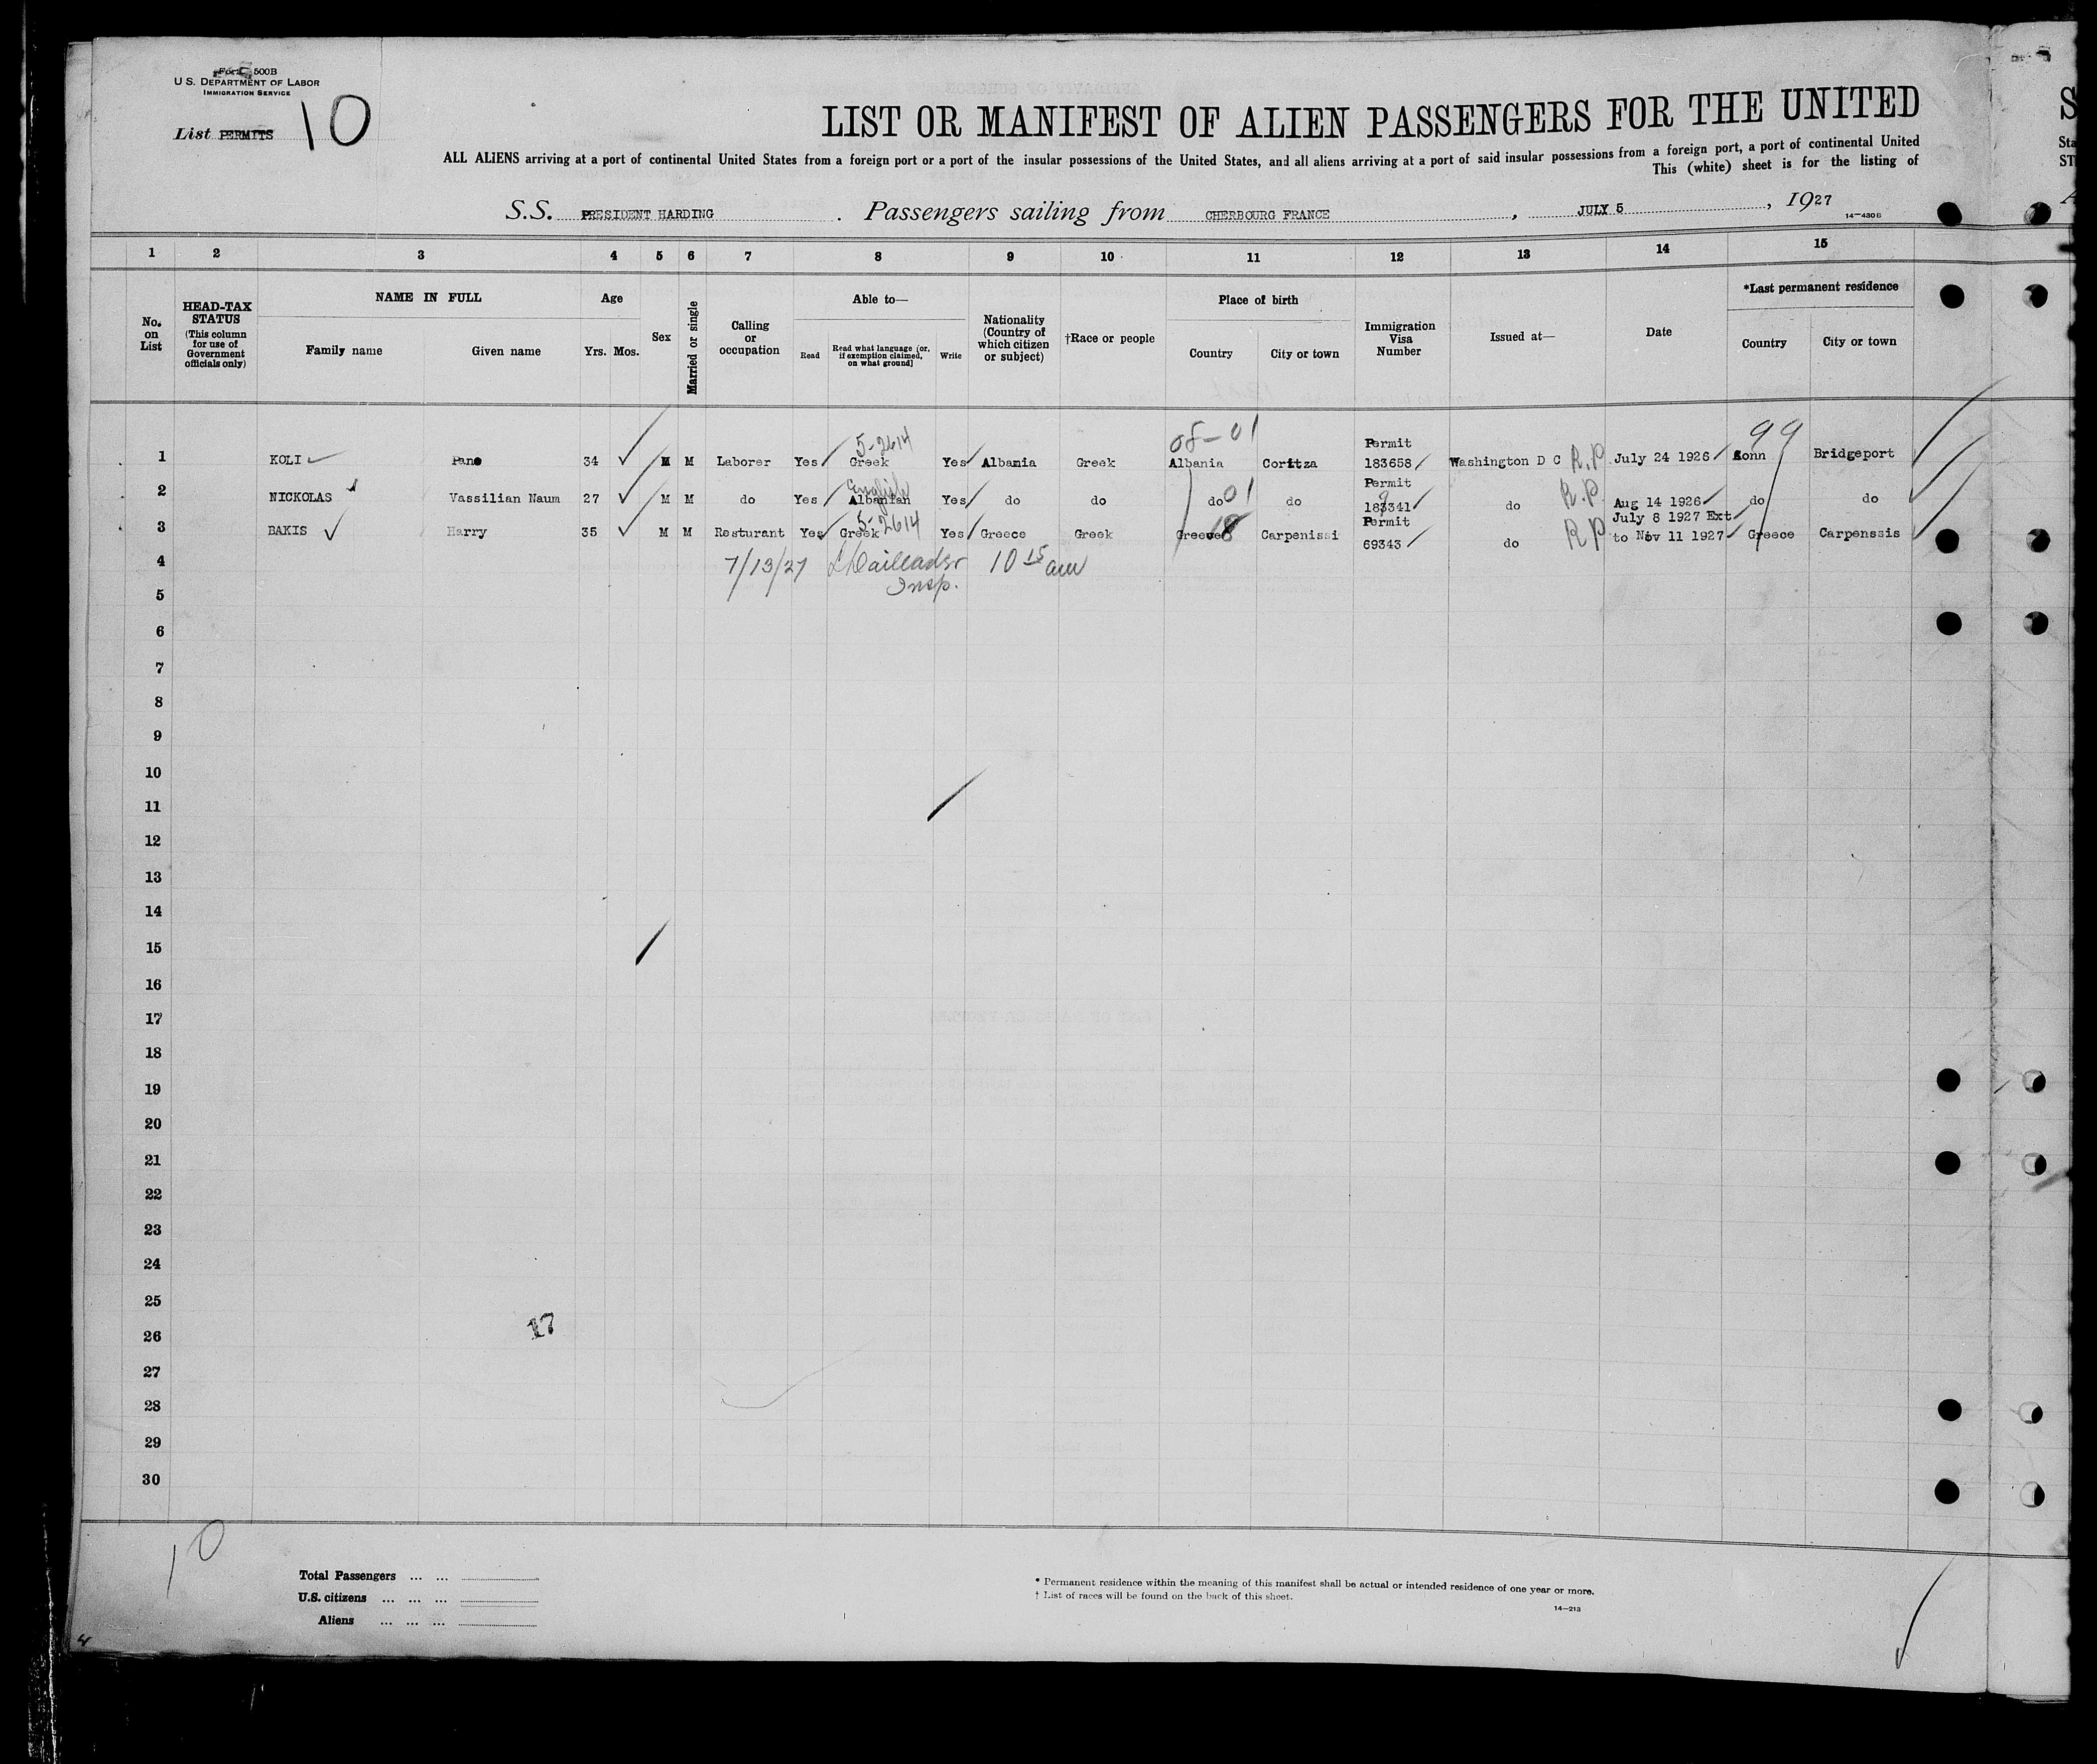 Form 500B
U S. DEPARTMENT OF LABOR
IMMIGRATION SERVICE
List PERMITS 10
LIST OR MANIFEST OF ALIEN PASSENGERS FOR THE UNITED
ALL ALIENS arriving at a port of continental United States from a foreign port or a port of the insular possessions of the United States, and all aliens arriving at a port of said insular possessions from a foreign port, a port of continental United
This (white) sheet is for the listing of
S.S. PRESIDENT HARDING . Passengers sailing from CHERBOURG FRANCE , JULY 5 , 1927
14—430B
1 2 3 4 5 6 7 8 9 10 11 12 13 14 15
No. on List
HEAD-TAX STATUS
(This column for use of Government officials only)
NAME IN FULL
Family name Given name
Age
Yrs. Mos.
Sex
Married or single
Calling or occupation
Able to—
Read
Read what language [or, if exemption claimed, on what ground]
Write
Nationality (Country of which citizen or subject)
†Race or people
Place of birth
Country City or town
Immigration Visa Number
Issued at—
Date
*Last permanent residence
Country City or town
5-2614 08-01 Permit 99
1 KOLI Pano 34 M M Laborer Yes Greek Yes Albania Greek Albania Coritza 183658 Washington D C R.P July 24 1926 Conn Bridgeport
English 01 Permit
2 NICKOLAS Vassilian Naum 27 M M do Yes Albanian Yes do do do do 183341 do R.P. Aug 14 1926 do do
5-2614 Permit July 8 1927 Ext
3 BAKIS Harry 35 M M Resturant Yes Greek Yes Greece Greek Greeve Carpenissi 69343 do RP to Nov 11 1927 Greece Carpenssis
4 7/13/27 Insp. 10 15 am
5
6
7
8
9
10
11
12
13
14
15
16
17
18
19
20
21
22
23
24
25
26 17
27
28
29
30
10
Total Passengers ... ...
U.S. citizens ... ... ...
Aliens ... ... ...
* Permanent residence within the meaning of this manifest shall be actual or intended residence of one year or more.
† List of races will be found on the back of this sheet.
14—213